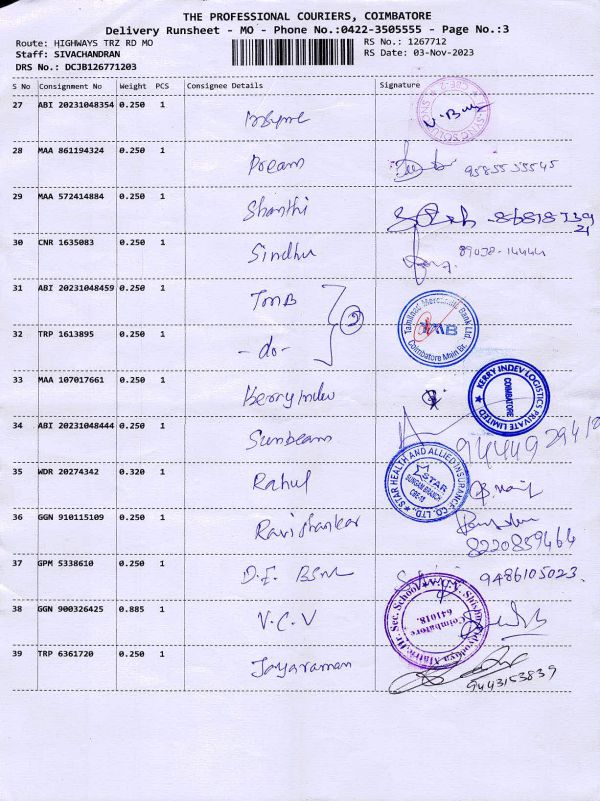 THE PROFESSIONAL COURIERS, COIMBATORE
Delivery Runsheet - MO - Phone No.:0422-3505555 - Page No.:3
Route: HIGHWAYS TRZ RD MO RS No.: 1267712
Staff: SIVACHANDRAN RS Date: 03-Nov-2023
DRS No.: DCJB126771203
S No Consignment No Weight PCS Consignee Details Signature
27 ABI 20231048354 0.250 1
28 MAA 861194324 0.250 1 Pream 9585555545
29 MAA 572414884 0.250 1 Shanthi
30 CNR 1635083 0.250 1 Sindhu 89038-14444
31 ABI 20231048459 0.250 1 TMB 2 Tamilnad Mercantile Bank Ltd TMB Coimbatore Main Br.
32 TRP 1613895 0.250 1 -do-
33 MAA 107017661 0.250 1 Kerry Indev KERRY INDEV LOGISTICS PRIVATE LIMITED COIMBATORE
34 ABI 20231048444 0.250 1 Sunbeam
35 WDR 20274342 0.320 1 Rahul STAR HEALTH AND ALLIED INSURANCE CO. LTD., STAR SUNGAM BRANCH CBE-18
36 GGN 910115109 0.250 1 Ravishankar 8220859464
37 GPM 5338610 0.250 1 D.E BSNL 9486105023.
38 GGN 900326425 0.885 1 V.C.V Matric. Hr. Sec. School Coimbatore 641018.
39 TRP 6361720 0.250 1 Jayaraman 9443153839